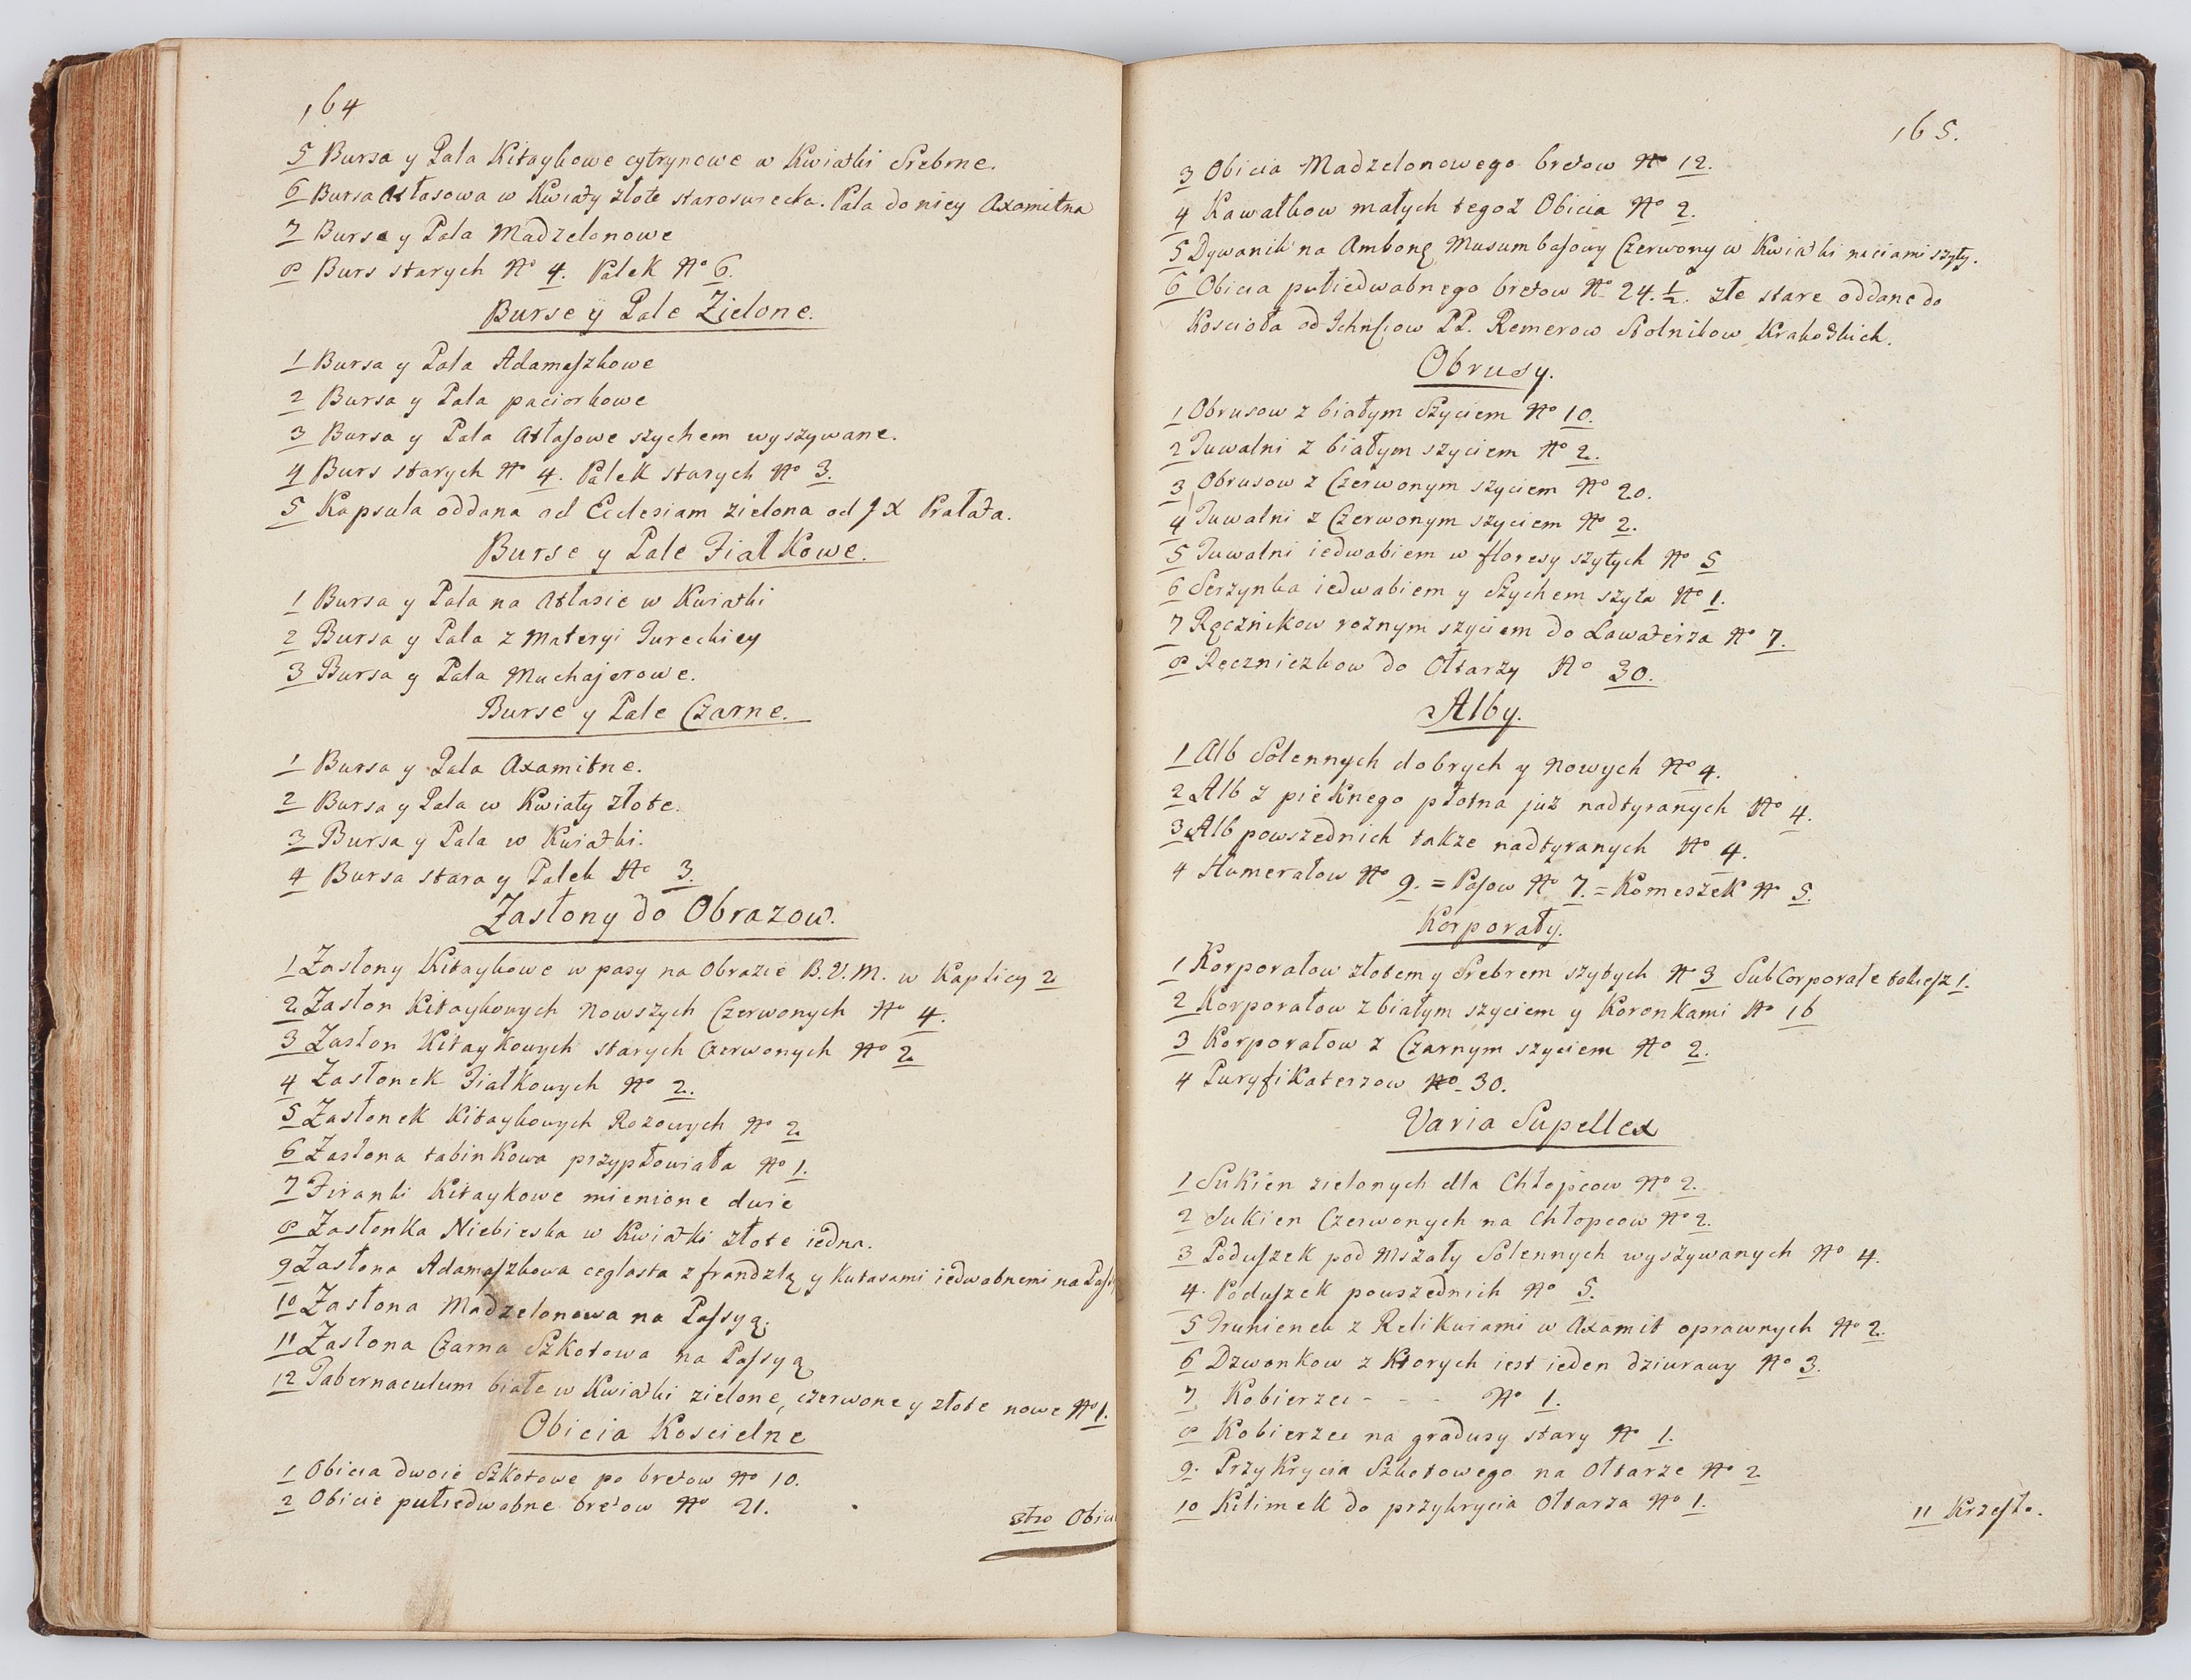 164
5 Bursa y Pala Kitaykowe cytrynowe w Kwiatki Srebrne.
6 Bursa Atłasowa w Kwiaty złote staroswiecka. Pala do niey Axamitna
7 Bursa y Pala Madzelonowe
8 Burs starych No 4. Palek No 6.
Burse ÿ Pale Zielone.
1 Bursa y Pala Adamaszkowe
2 Bursa y Pala paciorkowe
3 Bursa y Pala Atłasowe szychem wyszywane.
4 Burs starych No 4. Palek starych No 3.
5 Kapsula oddana ad Ecclesiam zielona od J X Prałata.
Burse y Pale Fiałkowe.
1 Bursa y Pala na Atłasie w Kwiatki
2 Bursa y Pala z Materyi Tureckiey
3 Bursa y Pala Muchajerowe.
Burse y Pale Czarne.
1 Bursa y Pala Axamitne.
2 Bursa y Pala w Kwiaty złote.
3 Bursa y Pala w Kwiatki.
4 Bursa stara y Palek No 3.
Zasłony do Obrazow.
1 Zasłony Kitaykowe w pasy na Obrazie B.V.M. w Kaplicy 2
2 Zasłon Kitaykowych Nowszych Czerwonych No 4.
3 Zasłon Kitaykowych starych Czerwonych No 2
4 Zasłonek Fiałkowych No 2.
5 Zasłonek Kitaykowych Rozowych No 2
6 Zasłona tabinkowa przypłowiała No 1.
7 Firanki Kitaykowe mienione dwie
8 Zasłonka Niebieska w Kwiatki złote iedna.
9 Zasłona Adamaszkowa ceglasta z frandzlą y kutasami iedwabnemi na
10 Zasłona Madzelonowa na Passyą.
11 Zasłona Czarna Szkotowa na Passyą
12 Tabernaculum białe w Kwiatki zielone, czerwone y złote nowe No 1.
Obicia Koscielne
1 Obicia dwoie Szkotowe po bretow No 10.
2 Obicie pułiedwabne bretow No 21.
3tio Obicia
165.
3 Obicia Madzelonowego bretow No 12.
4 Kawałkow małych tegoż Obicia No 2.
5 Dywanik na Ambonę Musumbasowy Czerwony w Kwiatki niciami szyty.
6 Obicia pułiedwabnego bretow No 24.½. złe stare oddane do
Koscioła od PP. Remerow Stolnikow Krakowskich.
Obrusy.
1 Obrusow z białym Szyciem No 10.
2 Tuwalni z białym szyciem No 2.
3 Obrusow z Czerwonym szyciem No 20.
4 Tuwalni z Czerwonym szyciem No 2.
5 Tuwalni iedwabiem w floresy szytych No 5
6 Serzynka iedwabiem y Szychem szyta No 1.
7 Ręcznikow roznym szyciem do Lawaterza No 7.
8 Ręczniczkow do Ołtarzy No 30.
Alby.
1 Alb Solennych dobrych y nowych No 4.
2 Alb z pieknego płotna już nadtyranych No 4.
3 Alb powszednich także nadtyranych No 4.
4 Humerałow No 9. = Pasow No 7. = Komeszek No 5.
Korporały.
1 Korporałow złotem y Srebrem szytych No 3 SubCorporale takiesz 1.
2 Korporałow z białym szyciem y Koronkami No 16
3 Korporałow z Czarnym szyciem No 2.
4 Puryfikaterzow No 30.
Varia Supellex
1 Sukien zielonych dla Chłopcow No 2.
2 Sukien Czerwonych na Chłopcow No 2.
3 Poduszek pod Mszały Solennych wyszywanych No 4.
4. Poduszek powszednich No 5.
5 Trunienek z Relikwiami w Axamit oprawnych No 2.
6 Dzwonkow z Ktorych iest ieden dziurawy No 3.
7 Kobierzec - - - No 1.
8 Kobierzec na gradusy stary No 1.
9. Przykrycia Szkotowego na Ołtarze No 2
10 Kilimek do przykrycia Ołtarza No 1.
11 Krzesło.